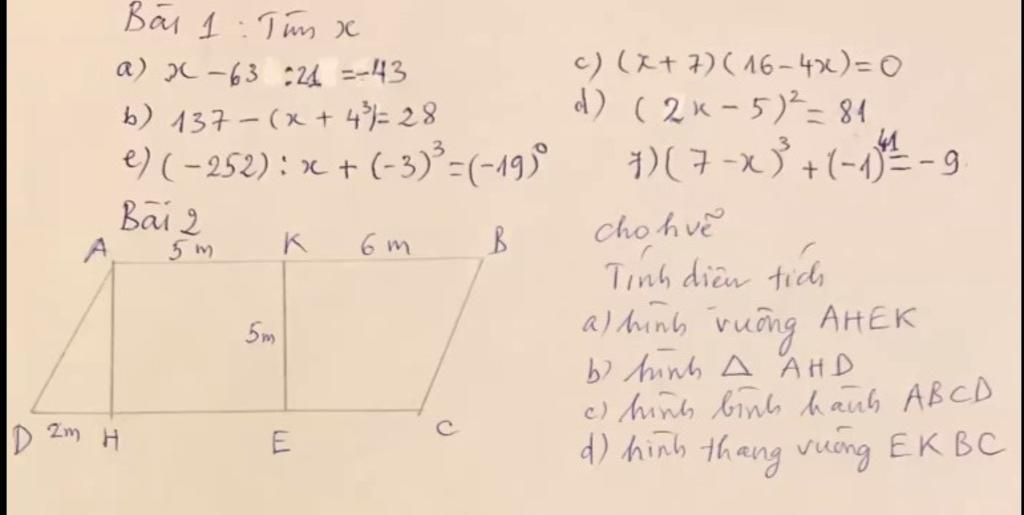 Bài 1 : Tìm x
a) x - 63 : 21 = -43
b) 137 - (x + 4³) = 28
e) (-252) : x + (-3)³ = (-19)⁰
c) (x + 7)(16 - 4x) = 0
d) (2x - 5)² = 81
7) (7 - x)³ + (-1)⁴¹ = -9
Bài 2
A 5 m K 6 m B
5m
D 2m H E C
cho h vẽ
Tính diện tích
a) hình vuông AHEK
b) hình Δ AHD
c) hình bình hành ABCD
d) hình thang vuông EKBC